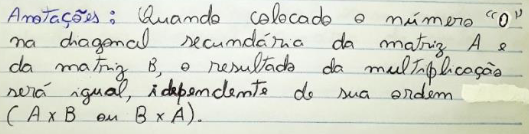 Anotações: Quando colocado o número "0"
na diagonal secundária da matriz A e
da matriz B, o resultado da multiplicação
será igual, idependente de sua ordem
(A x B ou B x A).